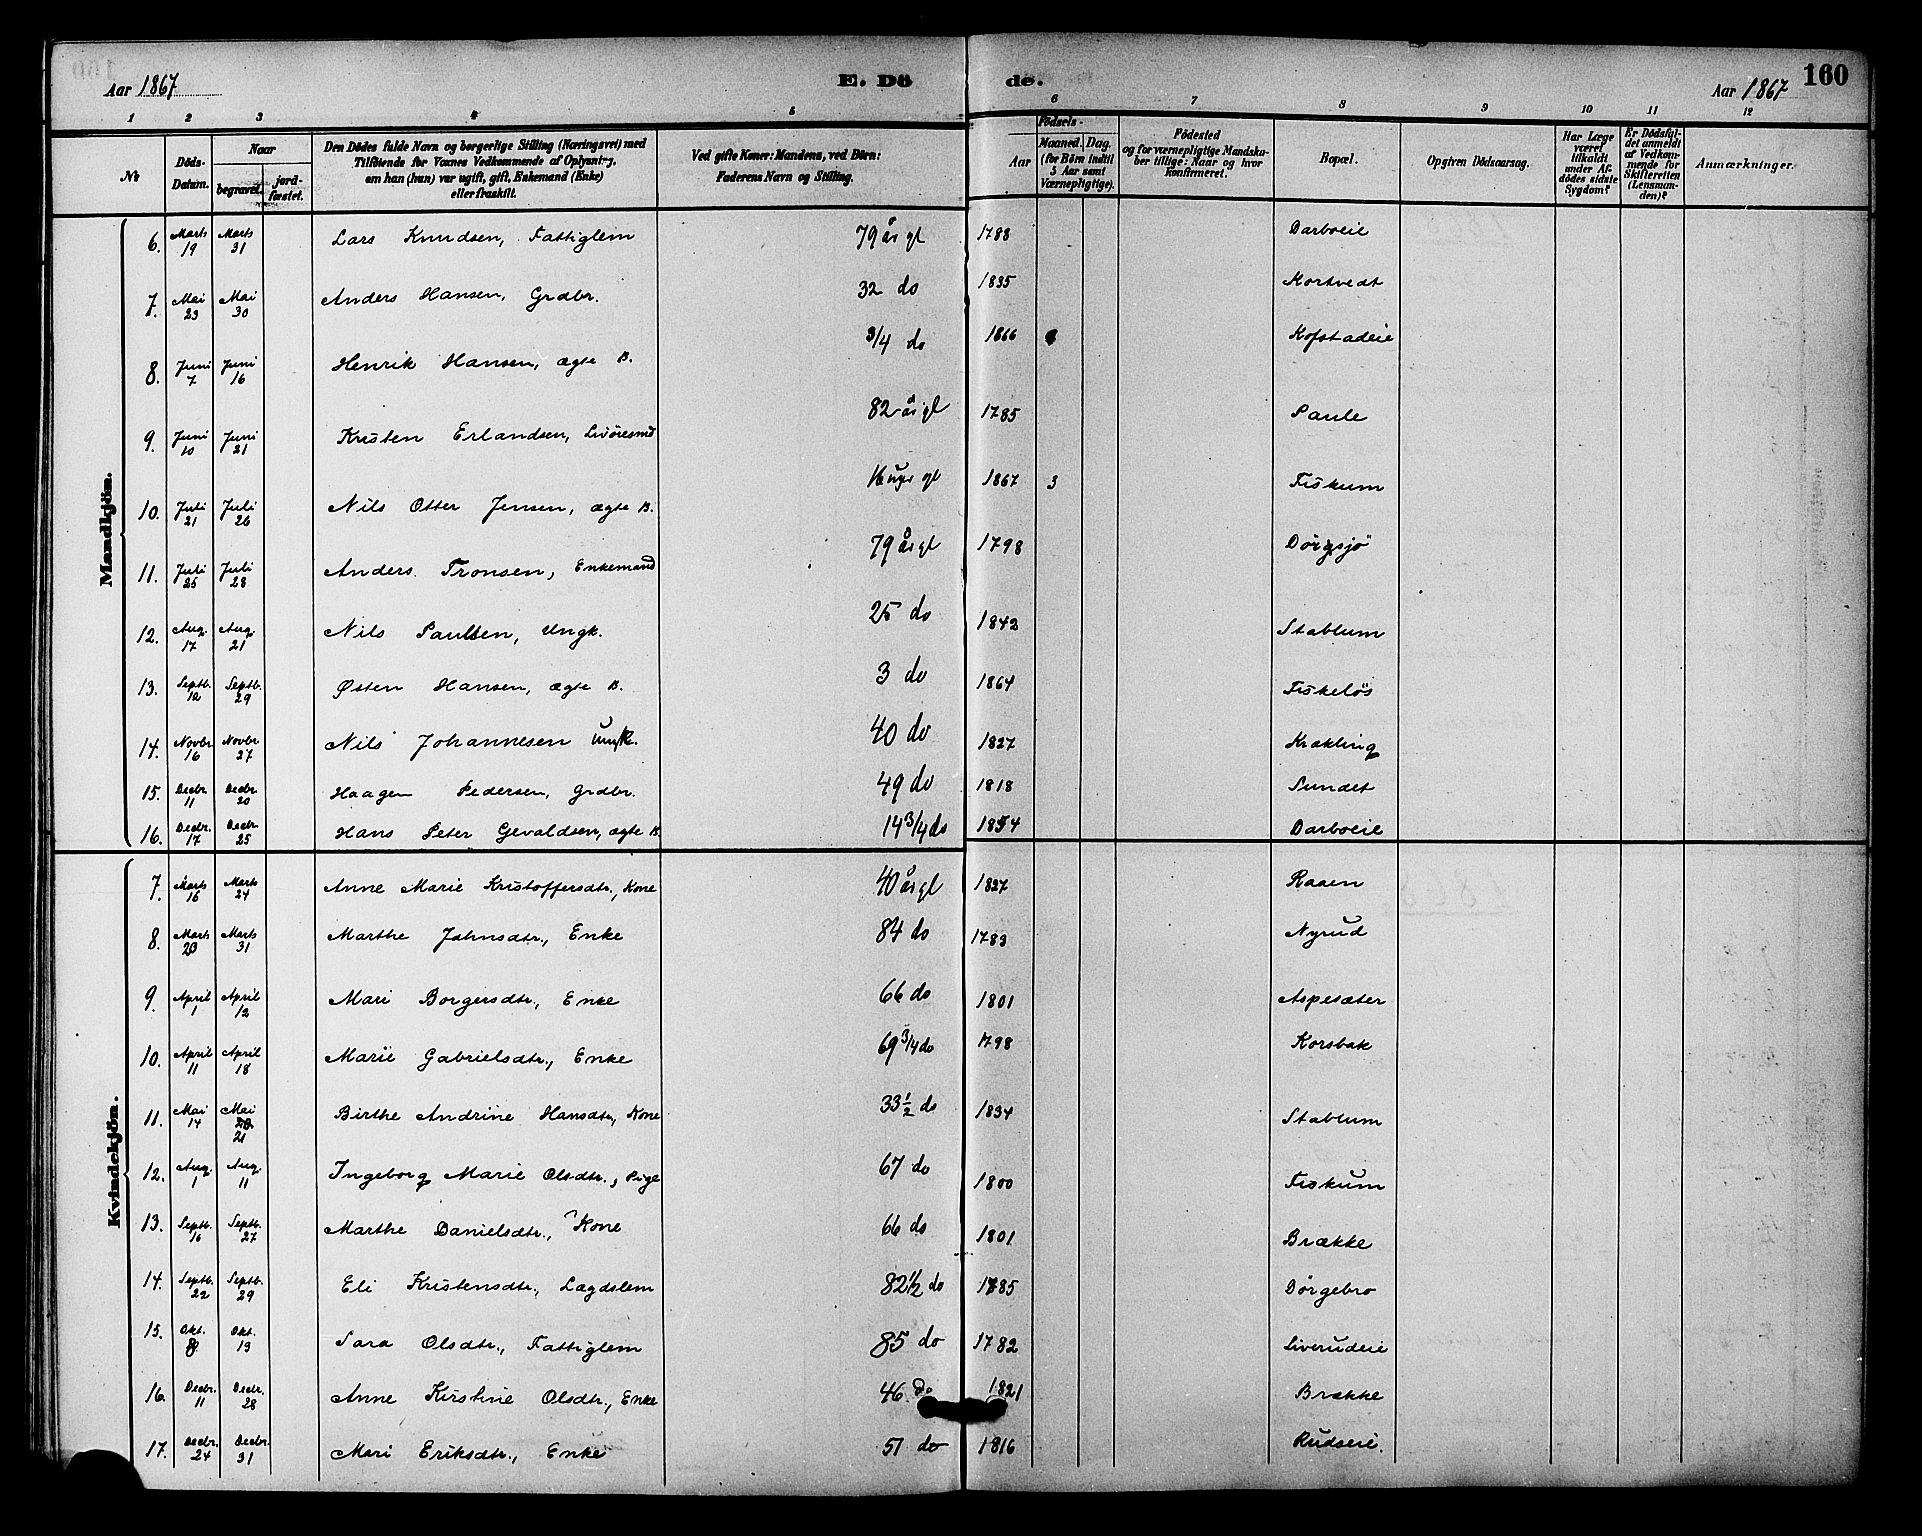 Aar 1867 E. Dö de. Aar 1867 160
1 2 3 4 5 6 7 8 9 10 11 12
№
Döds-Datum.
Naar
begravet.
jord-fæstet.
Den Dödes fulde Navn og borgerlige Stilling (Næringsvei) med
Tilföiende for Voxnes Vedkommende af Oplysning,
om han (hun) var ugift, gift, Enkemand (Enke)
eller fraskilt.
Ved gifte Koner: Mandens, ved Börn:
Faderens Navn og Stilling.
Aar
Födsels-
Maaned. Dag.
(for Börn indtil
5 Aar samt
Værnepligtige).
Födested
og for værnepligtige Mandska-
ber tillige: Naar og hvor
konfirmeret.
Bopæl.
Opgiven Dödsaarsag.
Har Læge
været
tilkaldt
under Af-
dödes sidste
Sygdom?
Er Dödsfal-
det anmeldt
af Vedkom-
mende for
Skifteretten
(Lensman-
den)?
Anmærkninger.
Mandkjön.
6. Marts 19 Marts 31 Lars Knudsen, Fattiglem 79 år gl 1788 Darboeie
7. Mai 23 Mai 30 Anders Hansen, Grdbr. 32 do 1835 Kortvedt
8. Juni 7 Juni 16 Henrik Hansen, ægte B. 3/4 do 1866 Kofstadeie
9. Juni 10 Juni 21 Kristen Erlandsen, 82 år gl 1785 Paule
10. Juli 21 Juli 26 Nils Otter Jensen, ægte B. 16 uger gl 1867 3 Fiskum
11. Juli 25 Juli 28 Anders Tronsen, Enkemand 79 år gl 1798 Dörgsjö
12. Aug. 17 Aug. 21 Nils Paulsen, Ungk. 25 do 1842 Stablum
13. Septb. 12 Septb. 29 Østen Hansen, ægte B. 3 do 1864 Fiskeløs
14. Novbr 16 Novbr 27 Nils Johannesen 40 do 1827 Krækling
15. Decbr 11 Decbr 20 Haagen Pedersen, Grdbr. 49 do 1818 Sundet
16. Decbr. 17 Decbr. 25 Hans Peter Gevaldsen, ægte B. 14 3/4 do 1854 Darboeie
Kvindekjön.
7. Marts 16 Marts 24 Anne Marie Kristoffersdtr., Kone 40 år gl 1827 Raaen
8. Marts 23 Marts 31 Marthe Jahnsdtr., Enke 84 do 1783 Nyrud
9. April 1 April 12 Mari Borgersdtr., Enke 66 do 1801 Aspesæter
10. April 11 April 18 Marie Gabrielsdtr., Enke 69 3/4 do 1798 Korsbak
11. Mai 14 Mai 21 Birthe Andrine Hansdtr., Kone 33 1/2 do 1834 Stablum
12. Aug. 1 Aug. 11 Ingeborg Marie Olsdtr., Pige 67 do 1800 Fiskum
13. Septb. 16 Septb. 27 Marthe Danielsdtr., Kone 66 do 1801 Brække
14. Septb. 22 Septb. 29 Eli Kristensdtr., Lægdslem 82 1/2 do 1785 Dörgebro
15. Okt. 8 Okt. 19 Sara Olsdtr., Fattiglem 85 do 1782 Liverudeie
16. Decbr. 11 Decbr. 28 Anne Kirstine Olsdtr., Enke 46 do 1821 Brække
17. Decbr. 24 Decbr. 31 Mari Eriksdtr., Enke 51 do 1816 Rudseie.